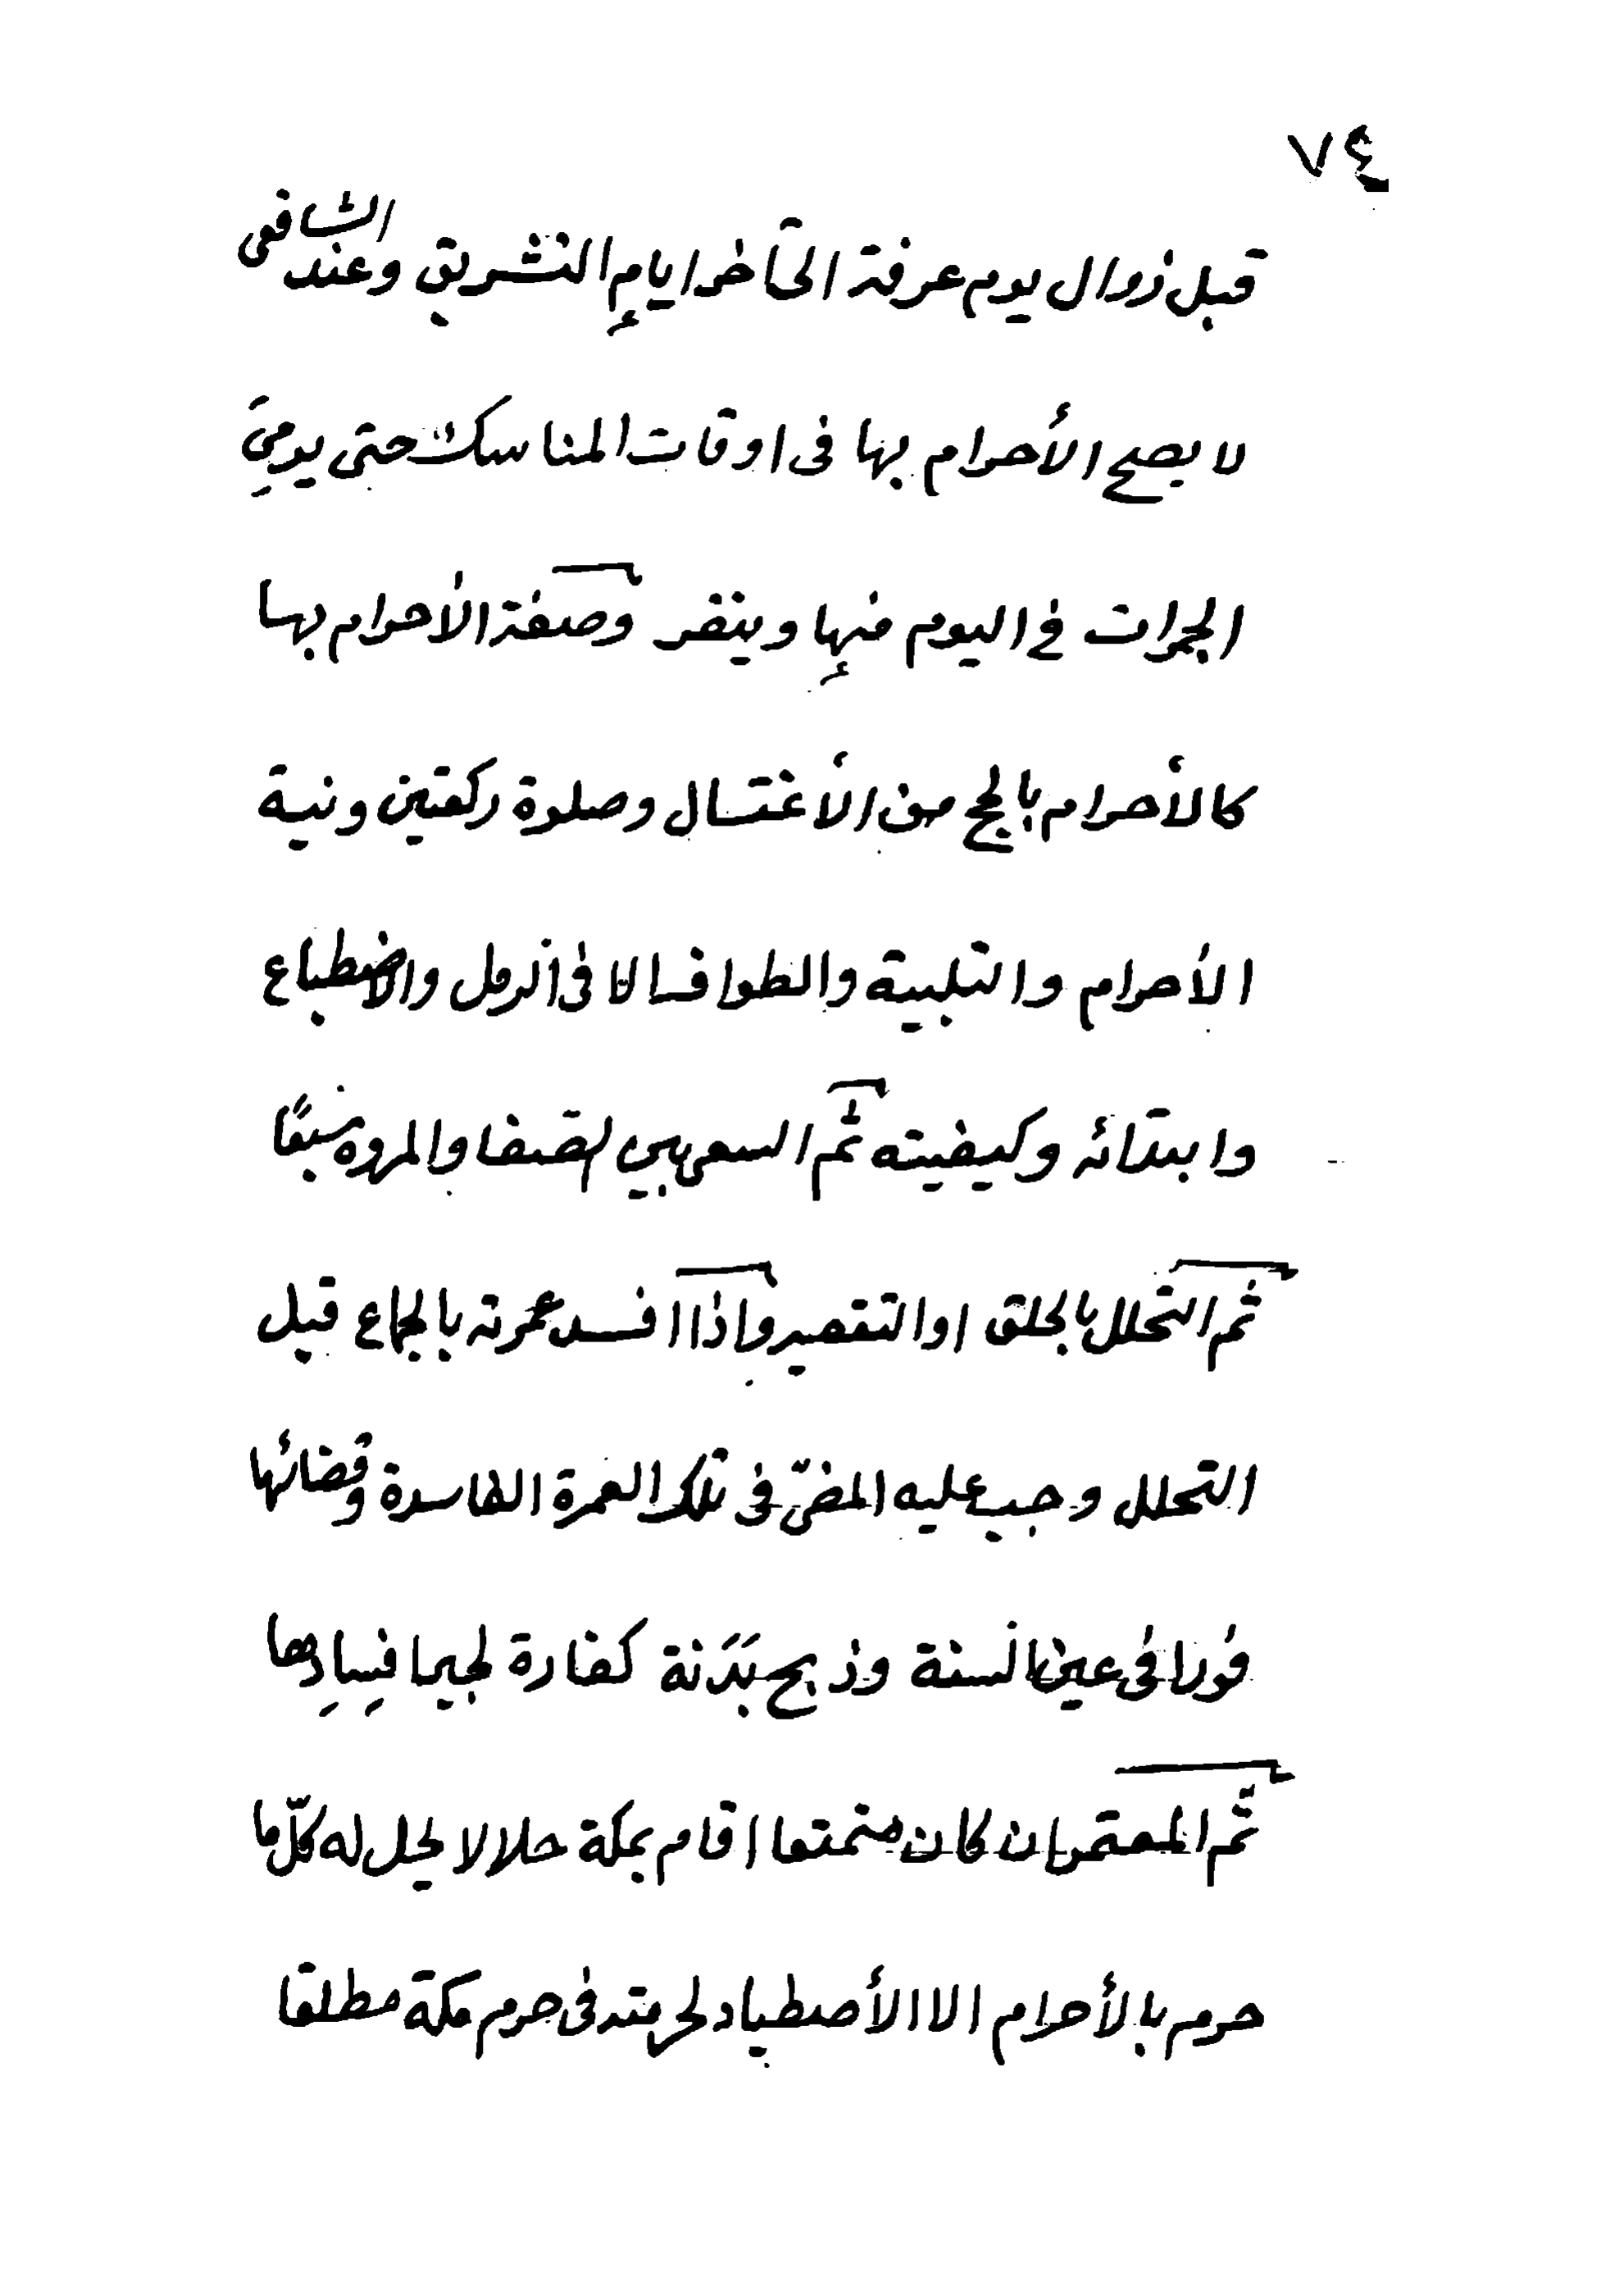 ٧٤
قبل زوال يوم عرفة الى آخر ايامِ التشريق وعند الشافعى
لا يصح الأحرام بها فى اوقات المناسك حتى يرميَ
الجمرات فى اليوم منهِا وينفر وصفة الأحرام بها
كالأحرام بالحج من الأغتسال وصلوة ركعتين ونية
الأحرام والتلبية والطواف الا فى الرمل والاضطباع
وابتدائه وكيفيته ثم السعى بين الصفا والمروه سبعًا
ثم التحلل بالحلق او التقصير واذا افسد عمرته بالجماع قبل
التحلل وجب عليه المضىّ فى تلك العمرة الفاسدة وقضائها
فورا فى عين السنة وذبح بَدَنة كفارة لجبر افسِادِها
ثم المعتمر ان كان متمتعا اقام بمكة حلالا يحل له كلّ ما
حرم بالأحرام الا الأصطياد لحرمته فى حرم مكة مطلقا